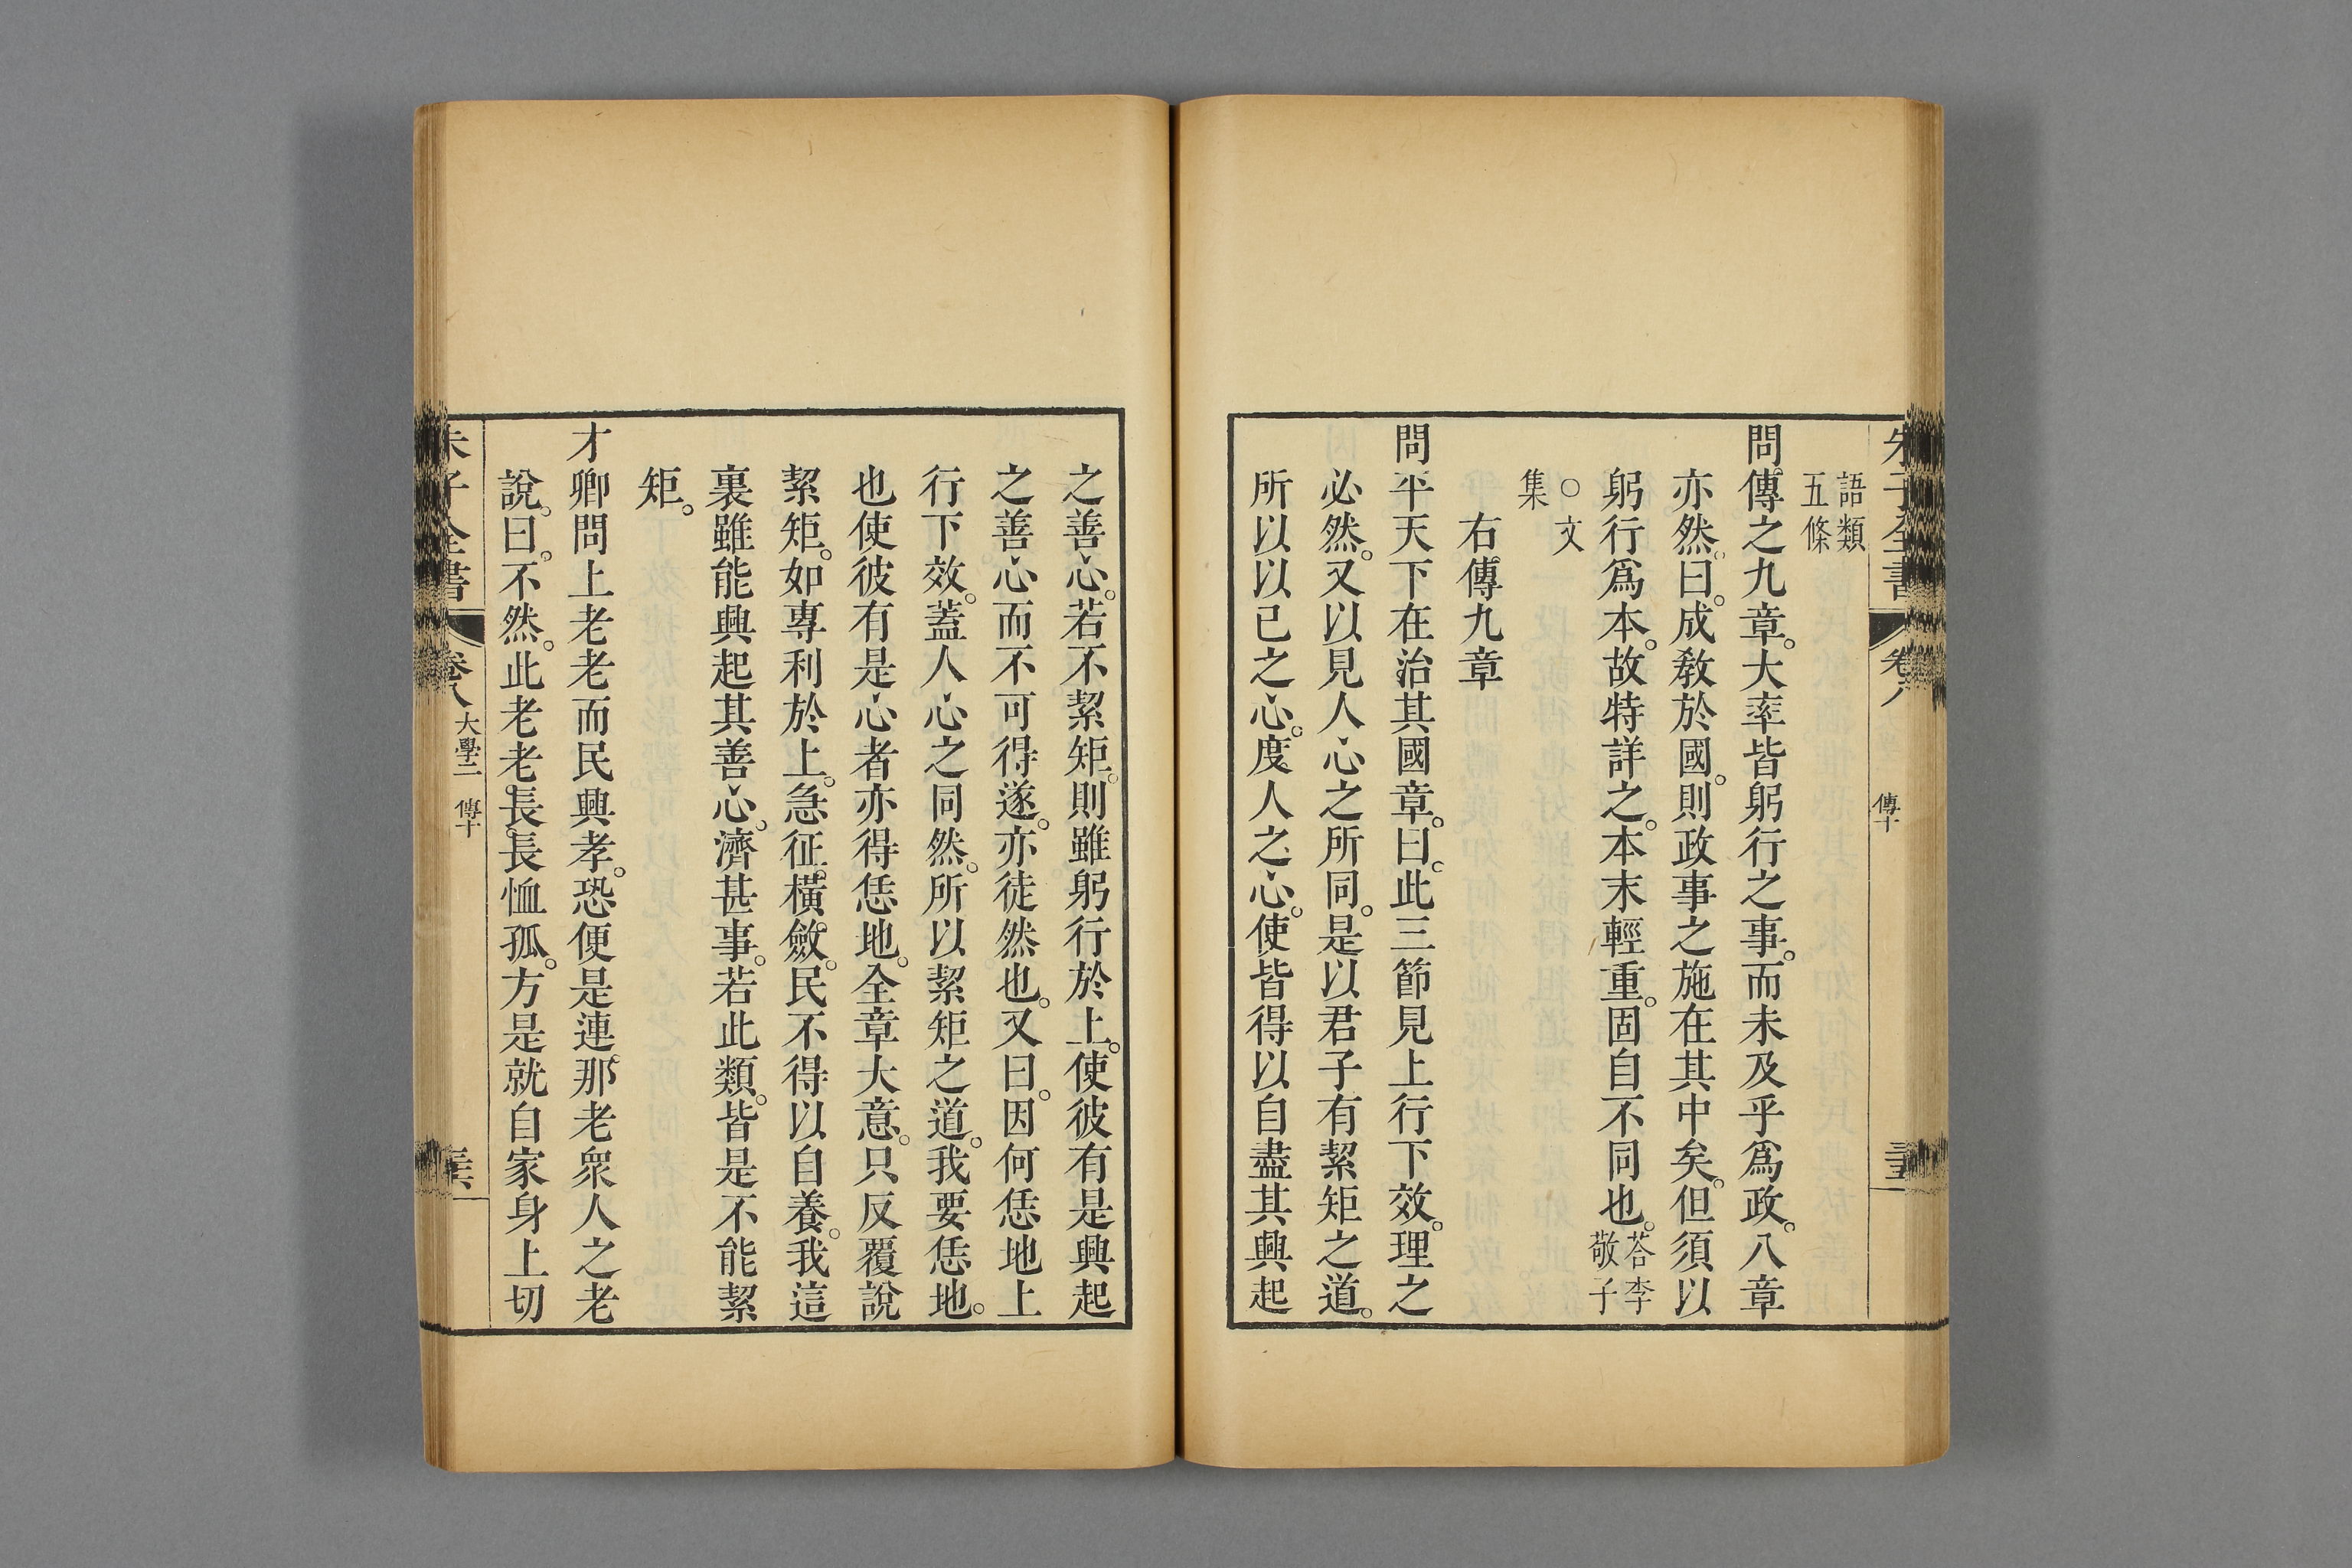 朱子全書 卷八 傳十
語類
五條
問傳之九章。大率皆躬行之事。而未及乎爲政。八章
亦然。曰。成敎於國。則政事之施在其中矣。但須以
躬行爲本。故特詳之。本末輕重。固自不同也。荅李敬子
○文
集
右傳九章
問平天下在治其國章。曰。此三節見上行下效。理之
必然。又以見人心之所同。是以君子有絜矩之道。
所以以己之心。度人之心。使皆得以自盡其興起
之善心。若不絜矩。則雖躬行於上。使彼有是興起
之善心而不可得遂。亦徒然也。又曰。因何恁地上
行下效。蓋人心之同然。所以絜矩之道。我要恁地。
也使彼有是心者亦得恁地。全章大意。只反覆說
絜矩。如專利於上。急征橫斂。民不得以自養。我這
裏雖能興起其善心。濟甚事。若此類。皆是不能絜
矩。
才卿問上老老而民興孝。恐便是連那老衆人之老
說。曰。不然。此老老。長長。恤孤。方是就自家身上切
朱子全書 卷八 大學二 傳十